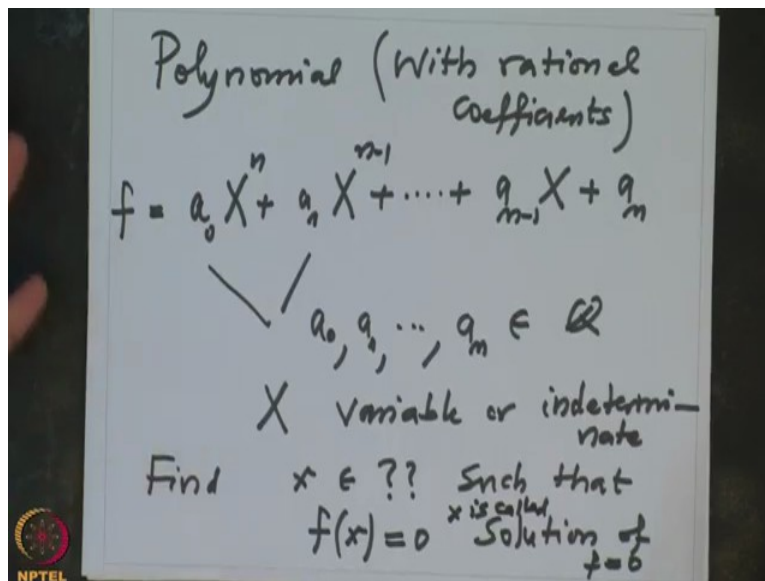 Polynomial (With rational
coefficients)
f = a₀ Xⁿ + a₁ Xⁿ⁻¹ + .... + aₙ₋₁ X + aₙ
a₀, a₁, ..., aₙ ∈ ℚ
X variable or indetermi-
nate
Find x ∈ ?? Such that
f(x) = 0 x is called Solution of
f=0
NPTEL